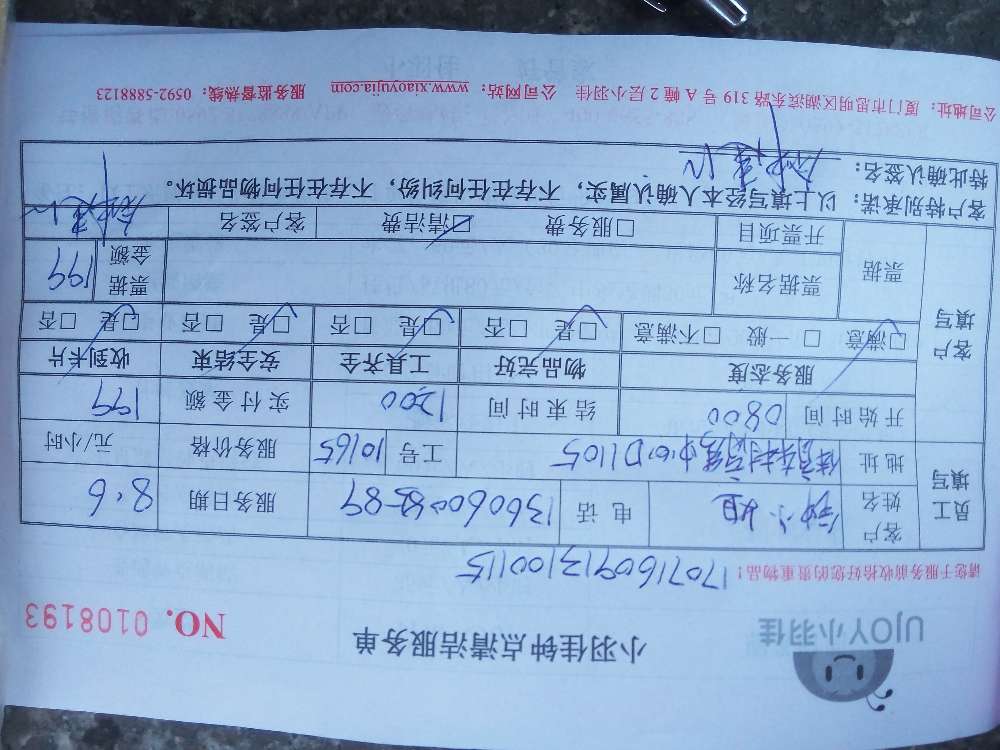 UJOY小羽佳 小羽佳钟点清洁服务单 NO. 0108193
请您于服务前收拾好您的贵重物品！ 170716091310015
员工填写 客户姓名 小姐 电话 服务日期 8.6
地址 D1105 工号 10165 服务价格 元/小时
开始时间 0800 结束时间 1200 实付金额 199
客户填写 服务态度 物品完好 工具齐全 安全结束 收到卡片
☑满意 □一般 □不满意 ☑是 □否 ☑是 □否 ☑是 □否 ☑是 □否
票据 票据名称 票据金额 199
开票项目 □服务费 ☑清洁费 客户签名
客户特别承诺：以上填写经本人确认属实，不存在任何纠纷，不存在任何物品损坏。
特此确认签名：
公司地址：厦门市思明区湖滨东路 319 号 A 幢 2 层小羽佳 公司网站：www.xiaoyujia.com 服务监督热线：0592-5888123